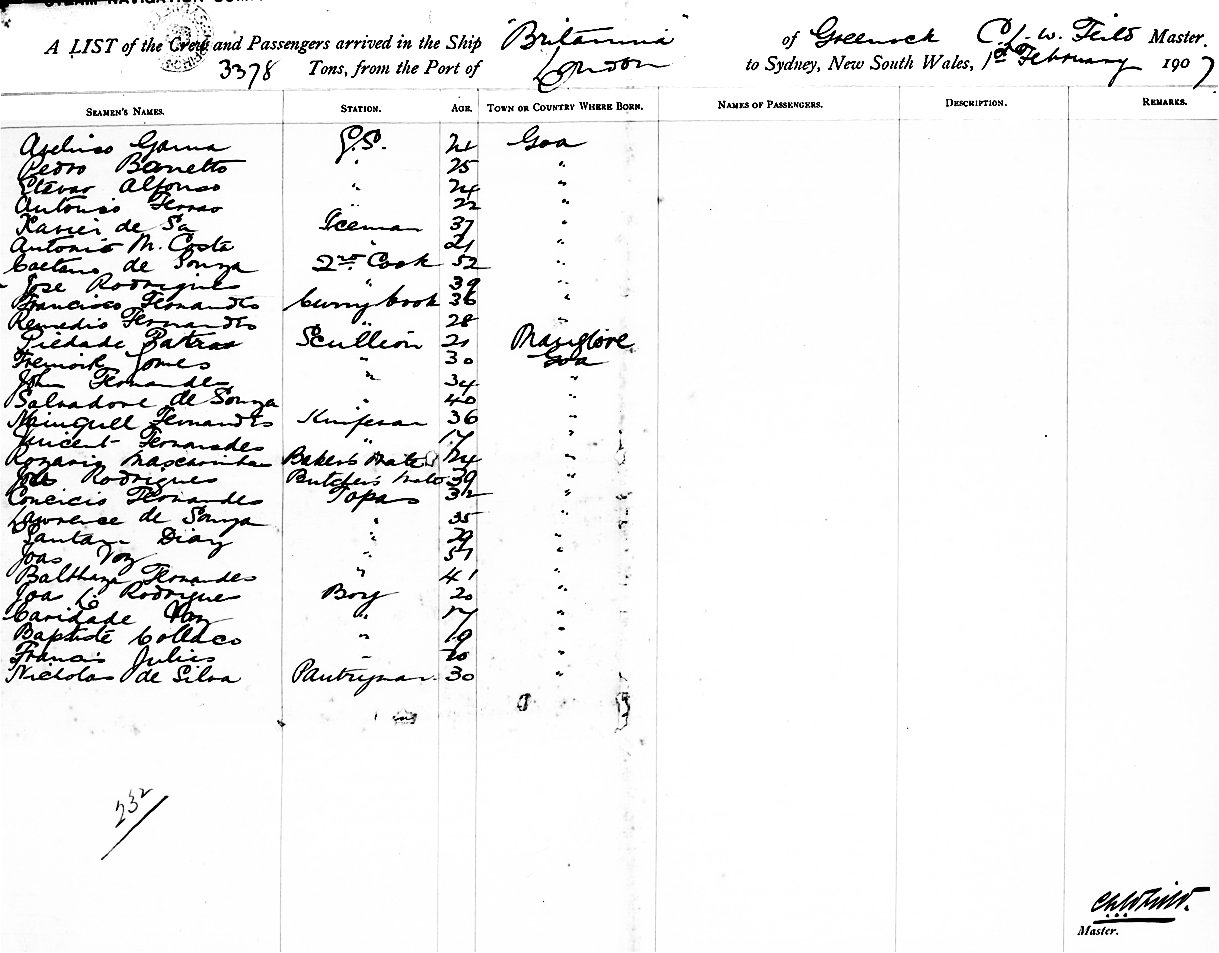 STEAM NAVIGATION COMP
A LIST of the Crew and Passengers arrived in the Ship "Britannia" of Greenock C. W. Feild Master.
3378 Tons, from the Port of London to Sydney, New South Wales, 1st February 1907
SEAMEN'S NAMES. STATION. AGE. TOWN OR COUNTRY WHERE BORN. NAMES OF PASSENGERS. DESCRIPTION. REMARKS.
Gama G.S. 24 Goa
Pedro Barretto 25 "
Estevao Alfonso " 24 "
Antonio Ferrao " 22 "
Xavier de Sa Iceman 37 "
Antonio M. Costa " 21 "
Caetano de Souza 2nd Cook 52 "
Jose Rodrigues " 39 "
Francisco Fernandes Curry Cook 36 "
Remedio Fernandes " 28 "
Piedade Scullion 21 Manglore
Gomes " 30 Goa
John Fernandes " 34 "
Salvadore de Souza " 40 "
Fernandes 36 "
Vincent Fernandes " 17 "
Rozario Mascarenhas Baker's Mate 24 "
Rodrigues Butcher's Mate 39 "
Fernandes Topas 32 "
Lawrence de Souza " 35 "
Santan Diaz " 29 "
Joao Vaz " 51 "
Balthazar Fernandes " 41 "
Joao C. Rodrigues Boy 20 "
Caridade Vaz " 17 "
Baptiste Collaco " 19 "
Francis Julius " 20 "
Nicholas de Silva Pantryman 30 "
232
Master.